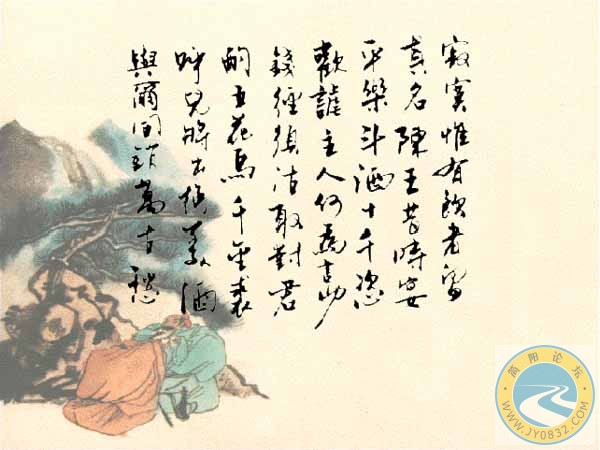 寂寞惟有飲者留
其名陳王昔時宴
平樂斗酒十千恣
歡謔主人何為言少
錢徑須沽取對君
酌五花馬千金裘
呼兒將出換美酒
與爾同銷萬古愁
简阳论坛
WWW.JY0832.COM